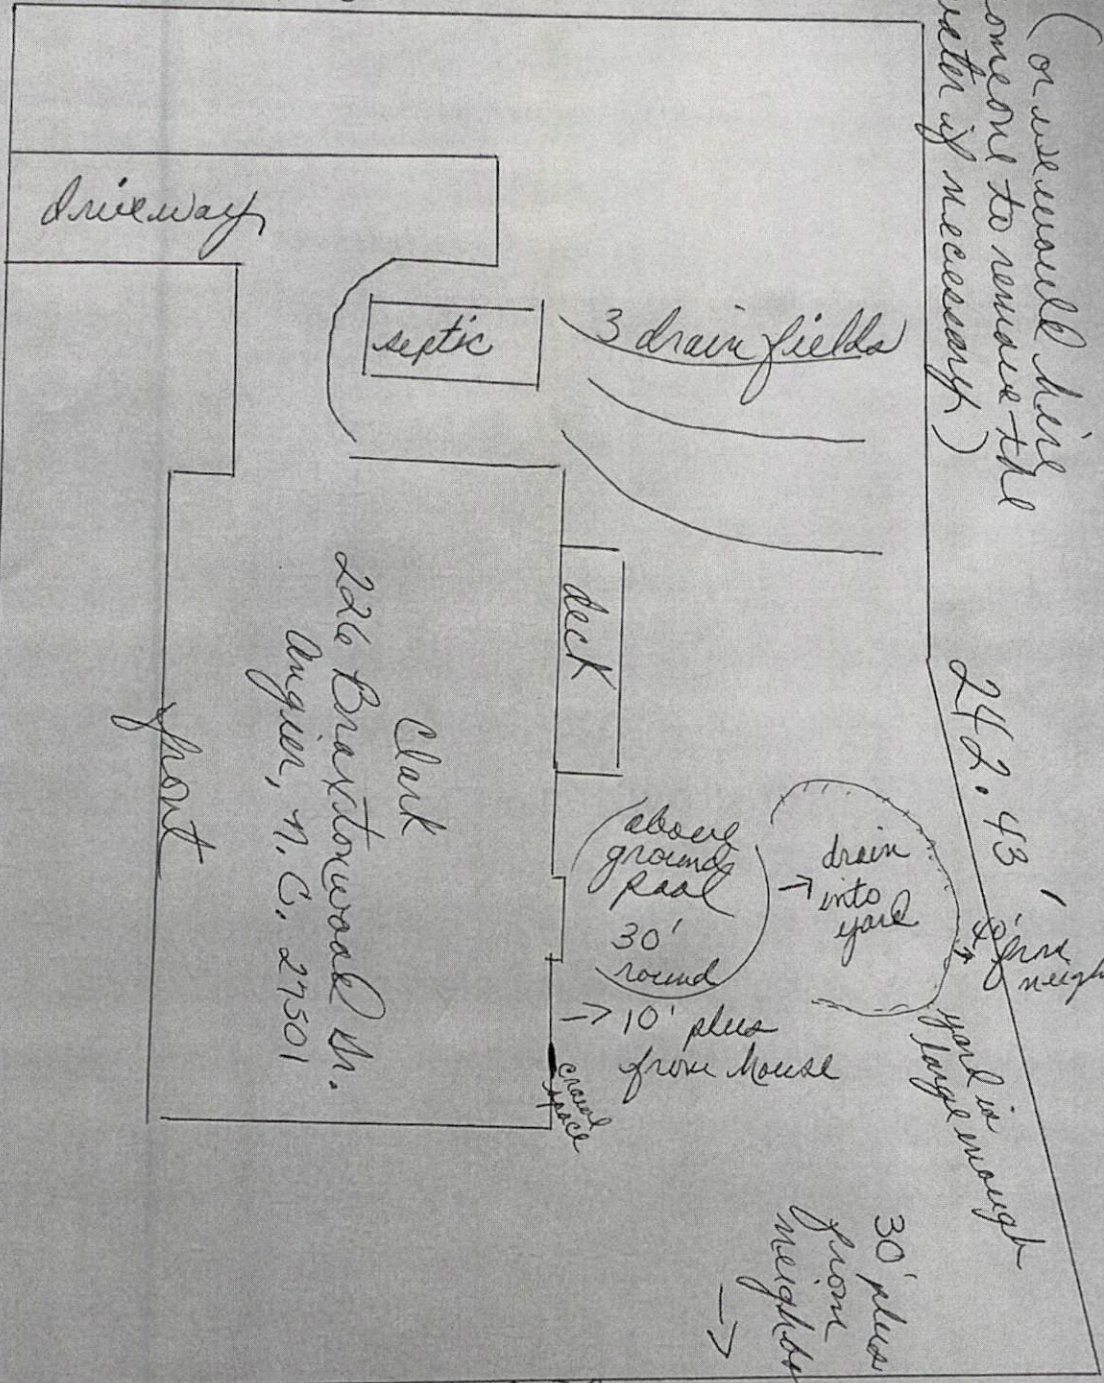 (or we would hire
omeone to remove the
water if necessary)
driveway
septic
3 drain fields
242.43'
deck
Clark
226 Braxtonwood Dr.
Angier, N.C. 27501
front
above
ground
pool
30'
round
→ drain
into
yard
from
neigh
yard is
large enough
→ 10' plus
from house
crawl
space
30' plus
from
neighbor
→